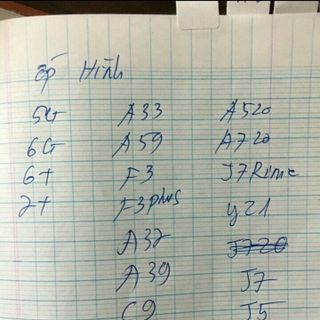 ốp Hình
5G A33 A520
6G A59 A720
6+ F3 J7Rime
7+ F3plus Y21
A37 J720
A39 J7
C9 J5